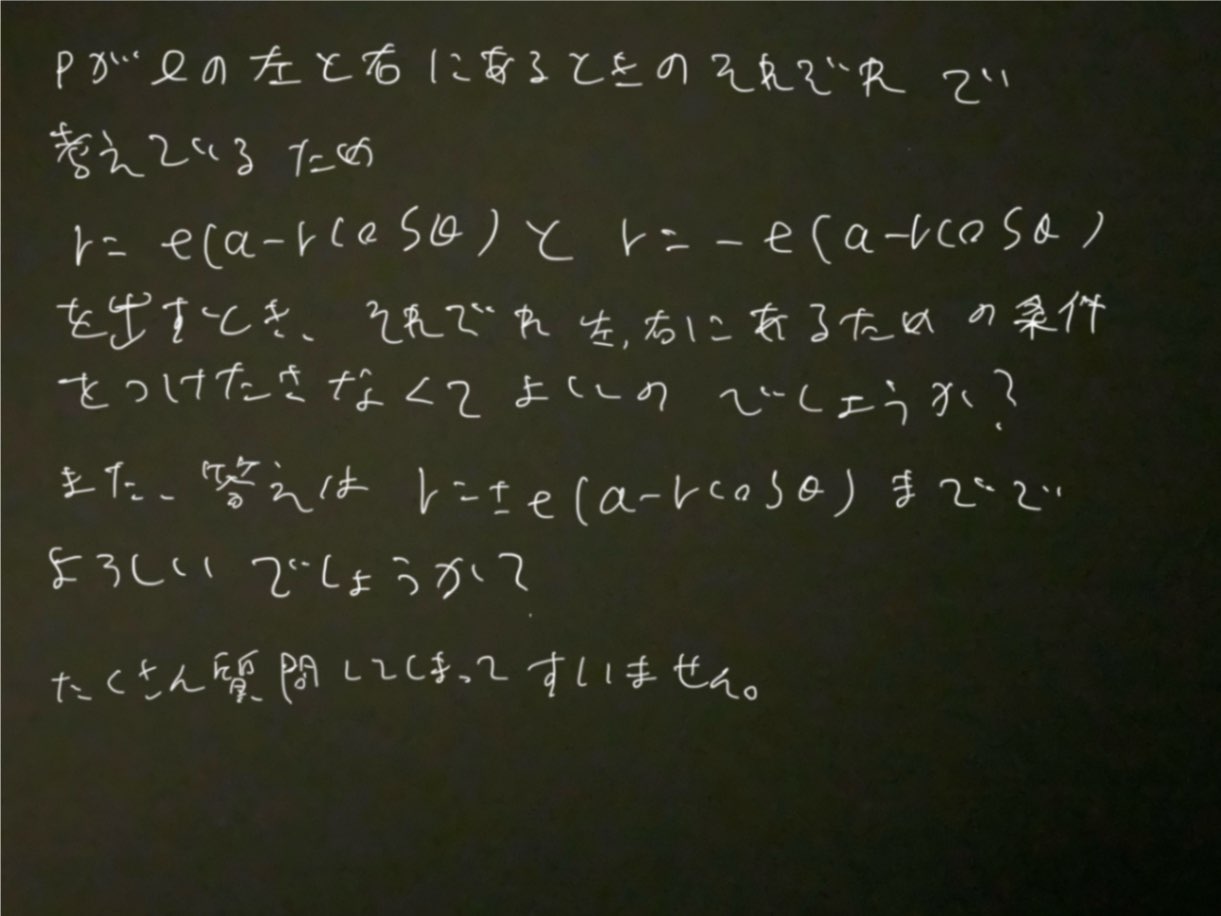 Pがℓの左と右にあるときのそれぞれで
考えているため
r=e(a-rcosθ)とr=-e(a-rcosθ)
を出すとき、それぞれ左,右にあるための条件
をつけたさなくてよいのでしょうか?
また、答えはr=±e(a-rcosθ)までで
よろしいでしょうか?
たくさん質問してしまってすいません。